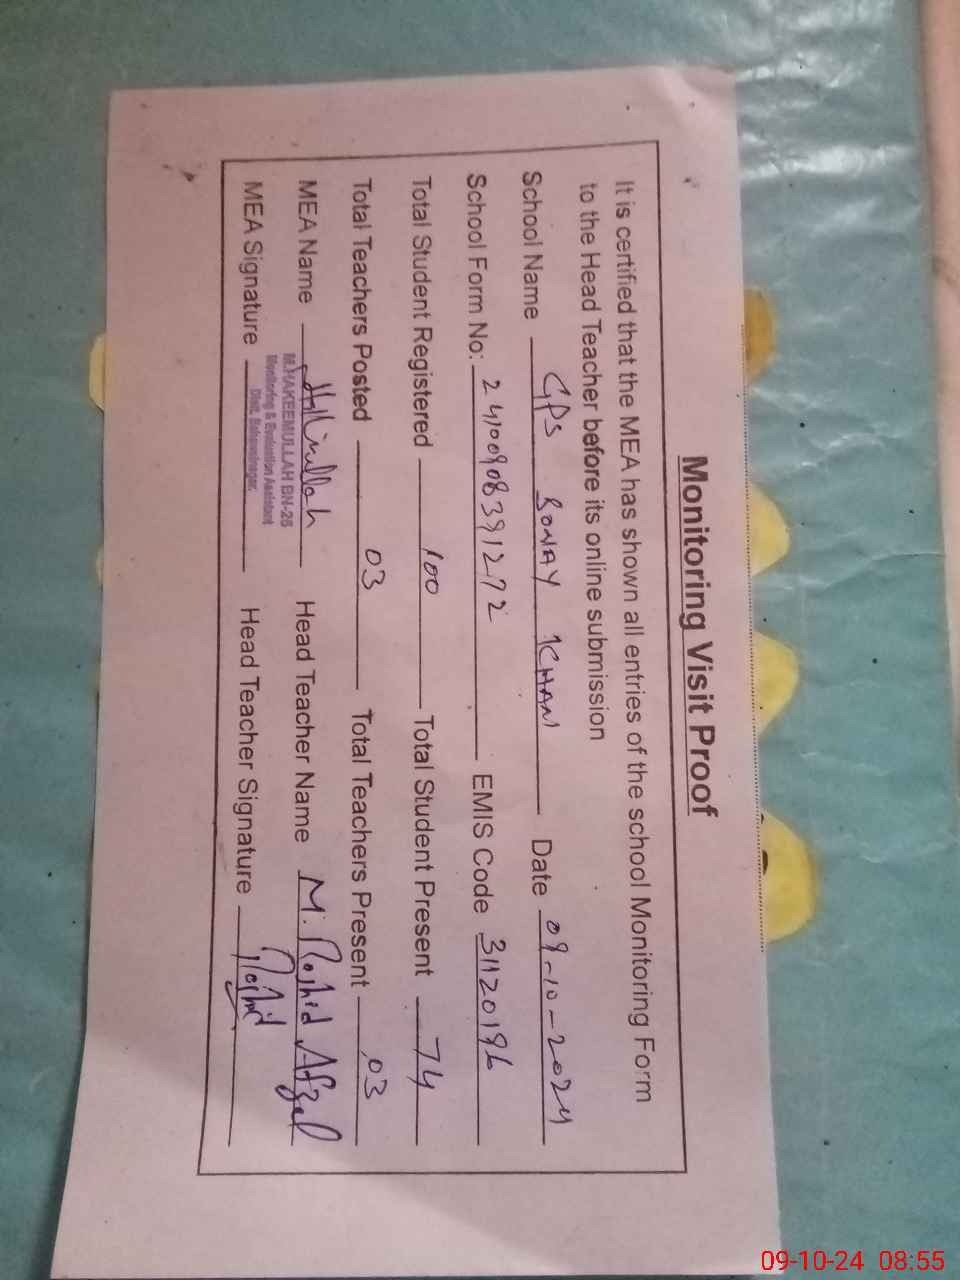 Monitoring Visit Proof
It is certified that the MEA has shown all entries of the school Monitoring Form
to the Head Teacher before its online submission
School Name GPS RONAY KHAN Date 09-10-2024
School Form No: 24100908391272 EMIS Code 31120196
Total Student Registered 100 Total Student Present 74
Total Teachers Posted 03 Total Teachers Present 03
MEA Name Head Teacher Name M. Rashid Afzal
M.HAKEEMULLAH BN-26
Monitoring & Evaluation Assistant
Distt. Bahawalnagar.
MEA Signature Head Teacher Signature Rashid
09-10-24 08:55